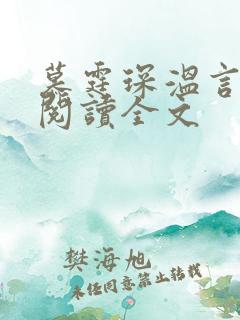 墓霆琛溫言
閱讀全文
樊海旭
未经同意禁止转载